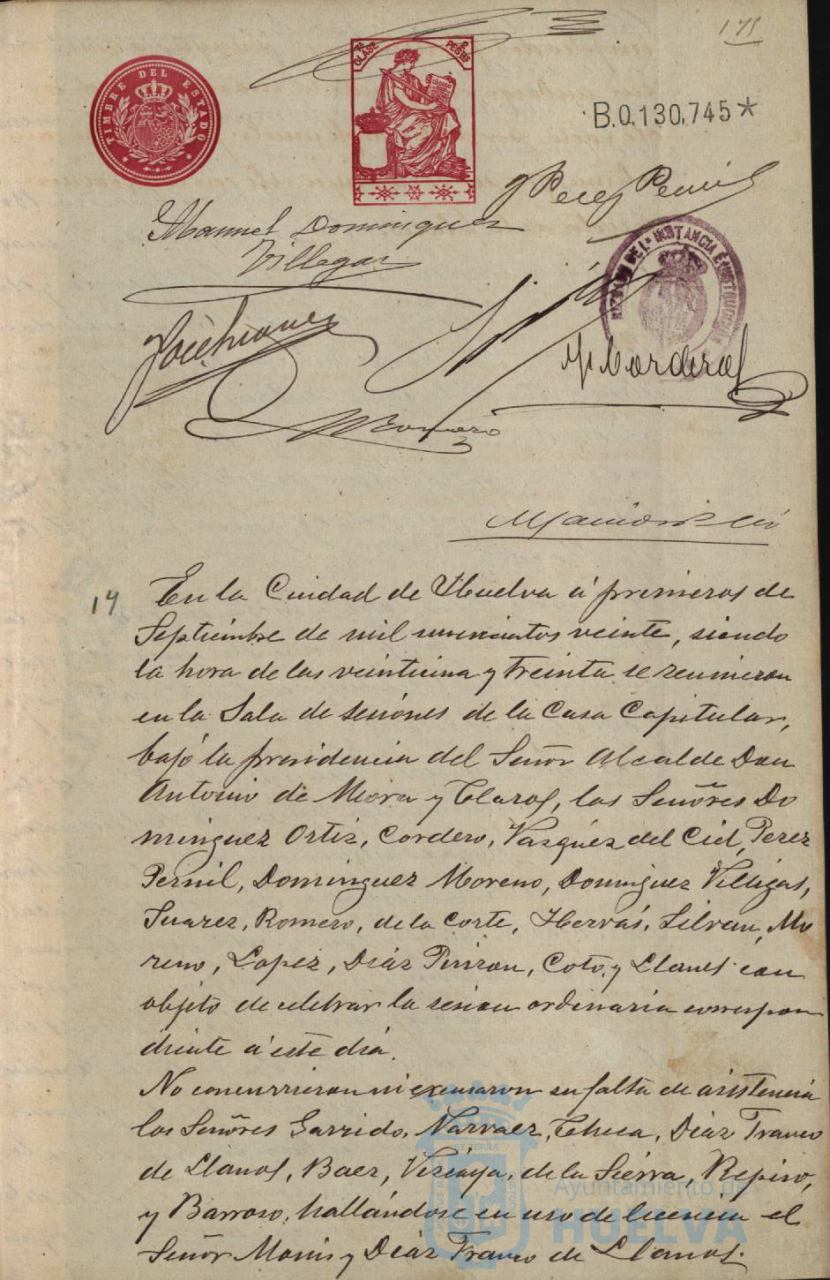 171
TIMBRE DEL ESTADO
7ª CLASE 2 PESETAS
B.0.130.745*
Perez Pernil
Manuel Dominguez
Villegas
JUZGADO DE 1ª INSTANCIA E INSTRUCCION
M Cordero
M Romero
14 En la Ciudad de Huelva á primeros de
Septiembre de mil novecientos veinte, siendo
la hora de las veintiuna y treinta se reunieron
en la Sala de sesiónes de la Casa Capitular,
bajó la presidencia del Señor Alcalde Don
Antonio de Mora y Claros, los Señores Do
minguez Ortiz, Cordero, Vazquéz del Cid, Perez
Pernil, Dominguez Moreno, Dominguez Villegas,
Suarez, Romero, de la Corte, Hervás, Silvan, Mo
reno, Lopez, Diáz Pinzon, Coto, y Llanes con
objeto de celebrar la sesion ordinaria correspon
diente á este dia.
No concurrieron ni excusaron su falta de asistencia
los Señores Garrido, Narvaez, Checa, Diáz Franco
de Llanos, Baez, Vizcaya, de la Siérra, Repiso,
y Barroso, hallándose en uso de licencia el
Señor Monis y Diáz Franco de Llanos.
Ayuntamiento de
HUELVA